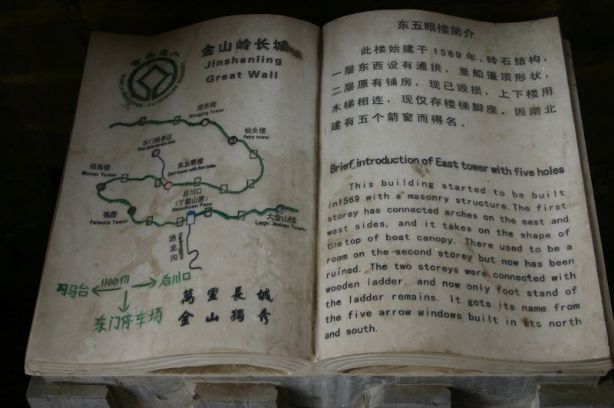 金山岭长城
Jinshanling
Great Wall
仙女楼
Fairy tower
东门服务区
东五眼楼
后川口
大金山楼
司马台
1100m
后川口
东门停车场
萬里長城
金山獨秀
东五眼楼简介
此楼始建于1569年，砖石结构，
一层东西设有通拱，呈船篷顶形状，
二层原有铺房，现已毁损，上下楼用
木梯相连，现仅存楼梯脚座。因南北
建有五个箭窗而得名。
Brief introduction of East tower with five holes
This building started to be built
in1569 with a masonry structure.The first
storey has connected arches on the east and
west sides, and it takes on the shape of
the top of boat canopy. There used to be a
room on the second storey but now has been
ruined. The two storeys were connected with
wooden ladder, and now only foot stand of
the ladder remains. It gets its name from
the five arrow windows built in its north
and south.